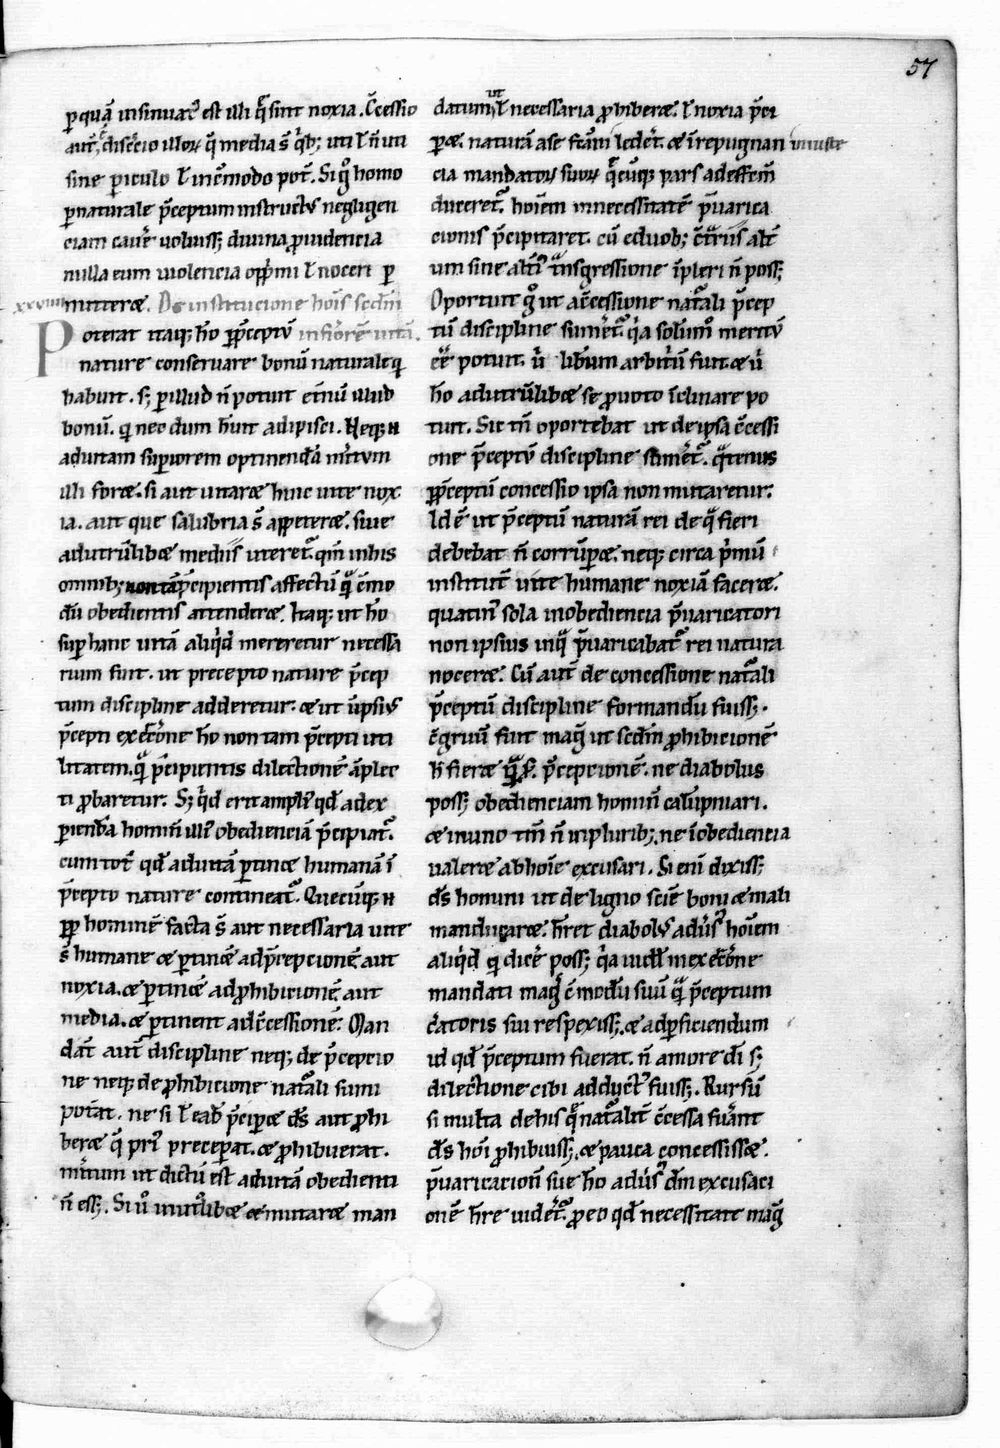 57
ꝑquā insinuatū est illi q̄ sint noxia. Cc̄essio
aut̄ & discreto illoꝝ q̄ media s̄ qͥbꝫ uti ł n̄ uti
sine ꝑiculo ł incōmodo pot̄. Si gͦ homo
ꝑ naturale p̄ceptum instructus negligen
ciam cauere uoluissꝫ diuina ꝓuidencia
nulla eum uiolencia opp̄mi ł noceri ꝑ
mitteret. De institucione hoīs scd̄m
xxviiii
Poterat itaqꝫ hō ꝓp̄ceptū inferiorē uitā.
nature conseruare bonū naturale qͥ
habuit. sꝫ ꝑ illud n̄ potuit etnū illud
bonū. qͥ necdum hūit adipisci. Neqꝫ n̄
ad uitam suꝑiorem optinendā mitum
illi foret. si aut uitaret huic uite nox
ia. aut que salubria s̄ appeteret. siue
ad utrūlibet mediis uteret̄. qm̄ in his
omnibꝫ non tā p̄cipientis affectū qͣ cōmo
dū obedientis attenderet. Itaqꝫ ut hō
suꝑ hanc uitā aliqͥd mereretur necessa
rium fuit. ut precepto nature p̄cep
tum discipline adderetur. & ut ipsiꝰ
p̄cepti executione hō non tam p̄cepti uti
litatem. qͣ p̄cipientis dilectionē āplec
ti ꝓbaretur. Sꝫ qͥd erit ampliꝰ qd̄ ad ex
ꝑiendā hominis illiꝰ obedienciā p̄cipiat̄.
cum totū qd̄ ad uitā ꝑtinet humanā ī
p̄cepto nature contineat̄. Quecūqꝫ n̄
ꝓp̄ hominē facta s̄ aut necessaria uite
s̄ humane & ꝑtinēt ad p̄cepcionē aut
noxia. & ꝑtinēt ad ꝓhibicionē aut
media. & ꝑtinent ad c̄cessionē. Man
dat̄ aut̄ discipline neqꝫ de p̄cepcio
ne neqꝫ de ꝓhibicione nat̄ali sumi
pot̄at. ne si ł eadē p̄ciꝑet ds̄ aut ꝓhi
beret q̄ priꝰ preceꝑat. & ꝓhibuerat.
mitum ut dictū est ad uitā obedienti
n̄ essꝫ. Si uͦ in utrūlibet & mutaret man
datum ut ł necessaria ꝓhiberet ł noxia p̄ci
ꝑet. naturā a se factam lederet. & ī repugnan
iniuste
cia mandatoꝝ suoꝝ qͣcūqꝫ pars ad effectū
duceret̄. hoīem in necessitatē p̄uarica
cionis p̄cipitaret. cū e duobꝫ ct̄rariis alt̄
um sine alt̄iꝰ tͣnsgressione ipleri n̄ possꝫ
Oportuit gͦ ut a c̄cessione nat̄ali p̄cep
tū discipline sumeret̄. qͥa solumō meritū
eē potuit. uͥ liberum arbitriū fuit & uͥ
hō ad utrūlibet se ꝓ uoto īclinare po
tuit. Sic tn̄ oportebat ut de ipsa c̄cessi
one p̄ceptū discipline sumeret̄. qͣtenus
ꝓ p̄ceptū concessio ipsa non mutaretur.
Id ē ut p̄ceptū naturā rei de qͣ fieri
debebat n̄ corrūperet. neqꝫ circa pͥmū
institutū uite humane noxiā faceret.
quatinꝰ sola inobediencia p̄uaricatori
non ipsius in qͣ p̄uaricabat̄ rei natura
noceret. Cū aut̄ de concessione nat̄ali
p̄ceptū discipline formandū fuissꝫ.
c̄gruū fuit magͥ ut scd̄m ꝓhibicionē
h̄ fieret qͣ s. p̄cepcionē. ne diabolus
possꝫ obedienciam hominis calūpniari.
& in uno tm̄ n̄ in pluribꝫ. ne īobediencia
ualeret ab hoīe excusari. Si eni dixissꝫ
ds̄ homini ut de ligno scīe boni & mali
manducaret. h̄ret diabolꝰ aduersꝰ hoīem
aliqͥd qͥ dicere possꝫ qͥa uidel in executione
mandati magͥ c̄modū suū qͣ p̄ceptum
c̄atoris sui respexissꝫ. & ad ꝑficiendum
id qd̄ p̄ceptum fuerat. n̄ amore di sꝫ
dilectione cibi adductꝰ fuissꝫ. Rursū
si multa de his q̄ nat̄alit̄ c̄cessa fuerant
ds̄ hoi ꝓhibuissꝫ. & pauca concessisset.
p̄uaricacionis sue hō aduersꝰ dm̄ excusaci
onē h̄re uideret̄. ꝓ eo qd̄ necessitate magͥ